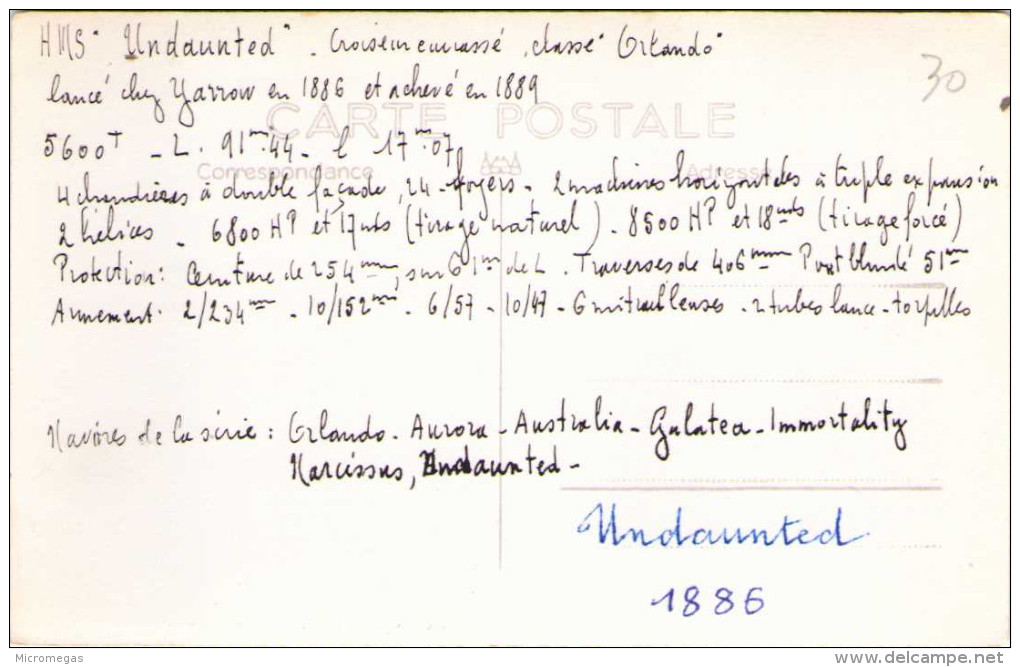 HMS "Undaunted". Croiseur cuirassé, classe "Orlando"
30
lancé chez Yarrow en 1886 et achevé en 1889
CARTE POSTALE
5600T - L. 91m.44 - l 17m.07
Correspondance Adresse
4 chaudières à double façade, 24 foyers - 2 machines horizontales à triple expansion
2 hélices - 6800 HP et 17 nds (tirage naturel). 8500 HP et 18 nds (tirage forcé)
Protection: Ceinture de 254mm, sur 61m de L. Traverses de 406mm Pont blindé 51mm
Armement: 2/234mm - 10/152mm - 6/57 - 10/47 - 6 mitrailleuses - 2 tubes lance-torpilles
Navires de la série: Orlando - Aurora - Australia - Galatea - Immortality
Narcissus, Undaunted -
Undaunted
1886
Micromegas
delcampe.net